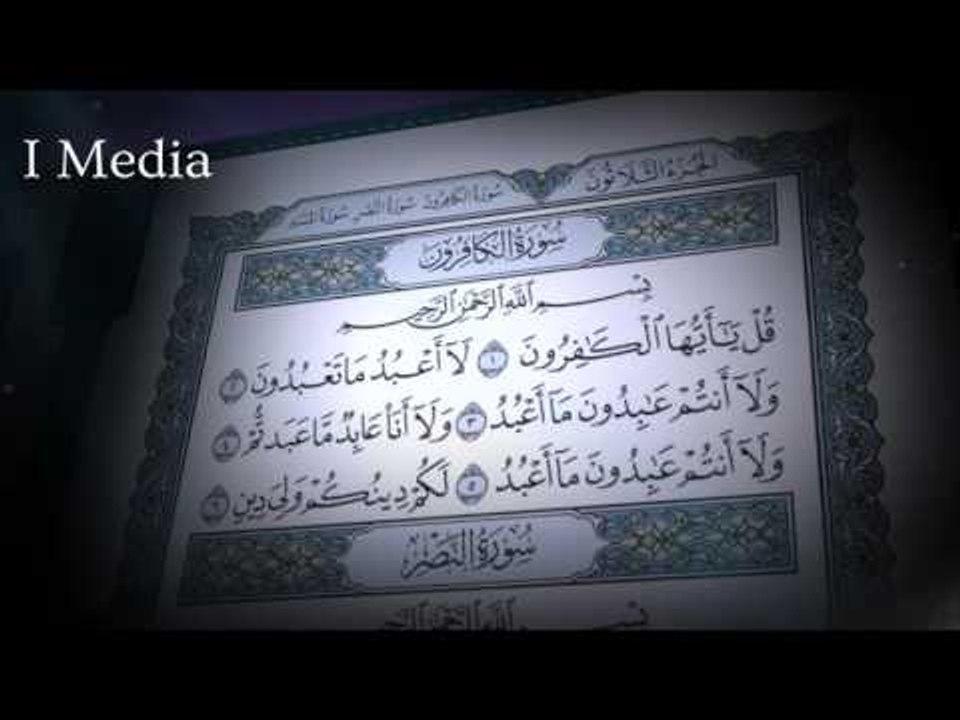 I Media
الجزء الثلاثون
سورة الكافرون سورة النصر سورة المسد
سُورَةُ الكَافِرُونَ
بِسْمِ ٱللَّهِ ٱلرَّحْمَٰنِ ٱلرَّحِيمِ
قُلْ يَٰٓأَيُّهَا ٱلْكَٰفِرُونَ ١ لَآ أَعْبُدُ مَا تَعْبُدُونَ ٢
وَلَآ أَنتُمْ عَٰبِدُونَ مَآ أَعْبُدُ ٣ وَلَآ أَنَا۠ عَابِدٌ مَّا عَبَدتُّمْ ٤
وَلَآ أَنتُمْ عَٰبِدُونَ مَآ أَعْبُدُ ٥ لَكُمْ دِينُكُمْ وَلِىَ دِينِ ٦
سُورَةُ النَّصْرِ
بِسْمِ ٱللَّهِ ٱلرَّحْمَٰنِ ٱلرَّحِيمِ